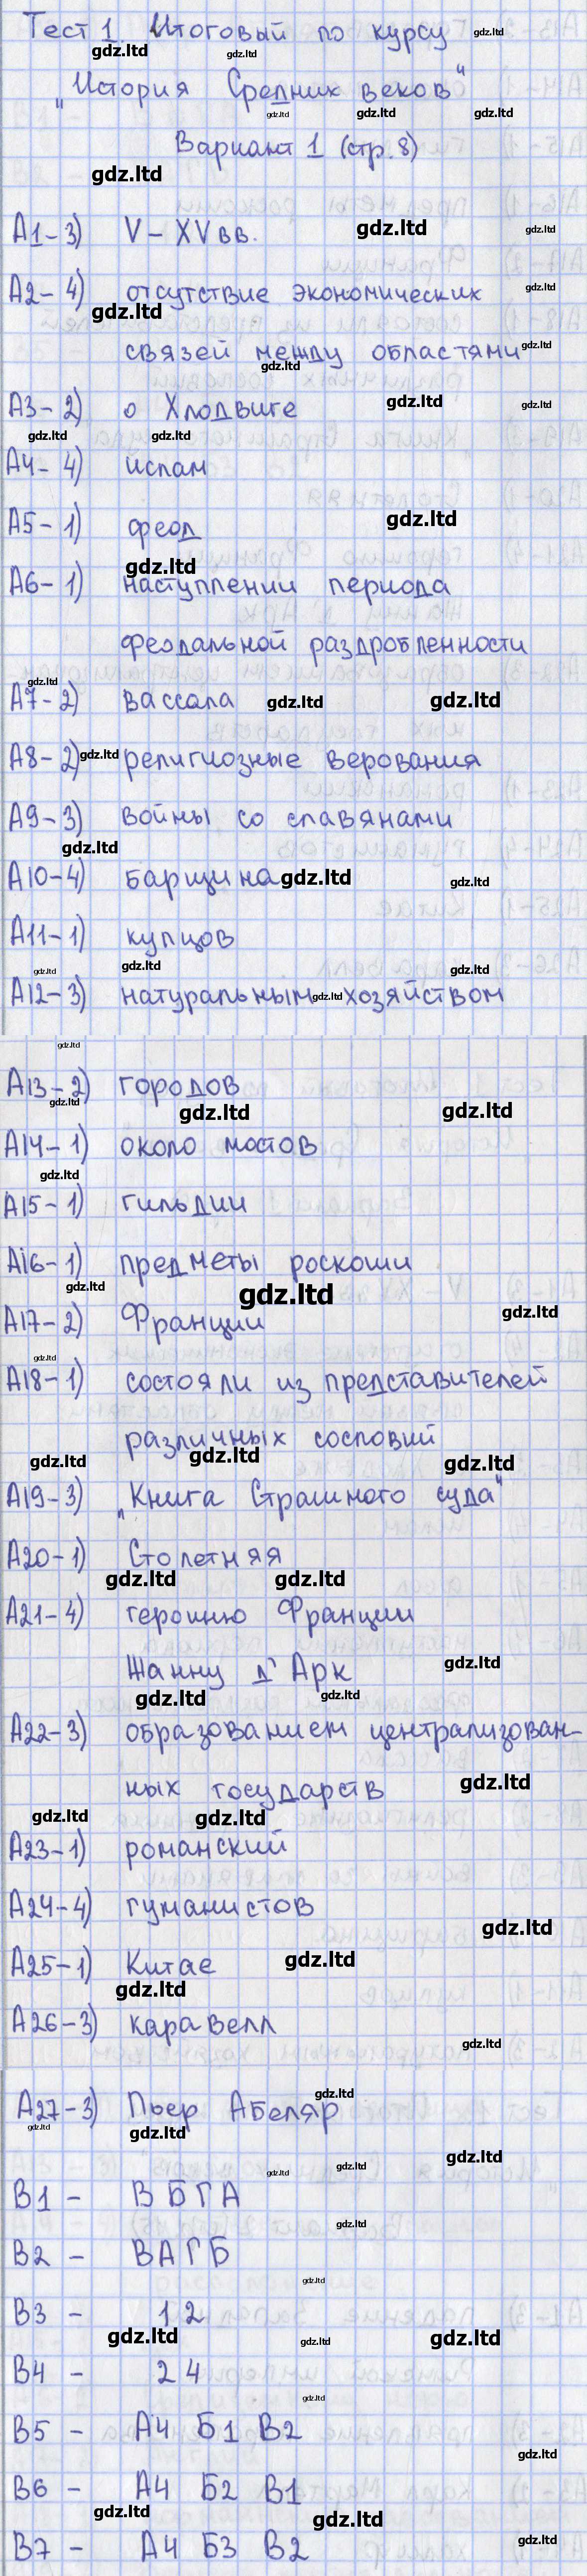 Тест 1. Итоговый по курсу
"История Средних веков"
Вариант 1 (стр. 8)
А1-3) V - XV вв.
А2-4) отсутствие экономических
связей между областями
А3-2) о Хлодвиге
А4-4) ислам
А5-1) феод
А6-1) наступлении периода
феодальной раздробленности
А7-2) вассала
А8-2) религиозные верования
А9-3) войны со славянами
А10-4) барщина
А11-1) купцов
А12-3) натуральным хозяйством
А13-2) городов
А14-1) около мостов
А15-1) гильдии
А16-1) предметы роскоши
А17-2) Франции
А18-1) состояли из представителей
различных сословий
А19-3) "Книга Страшного суда"
А20-1) Столетняя
А21-4) героиню Франции
Жанну д'Арк
А22-3) образованием централизован-
ных государств
А23-1) романский
А24-4) гуманистов
А25-1) Китае
А26-3) каравелл
А27-3) Пьер Абеляр
В1 - В Б Г А
В2 - В А Г Б
В3 - 1 2
В4 - 2 4
В5 - А4 Б1 В2
В6 - А4 Б2 В1
В7 - А4 Б3 В2
gdz.ltd